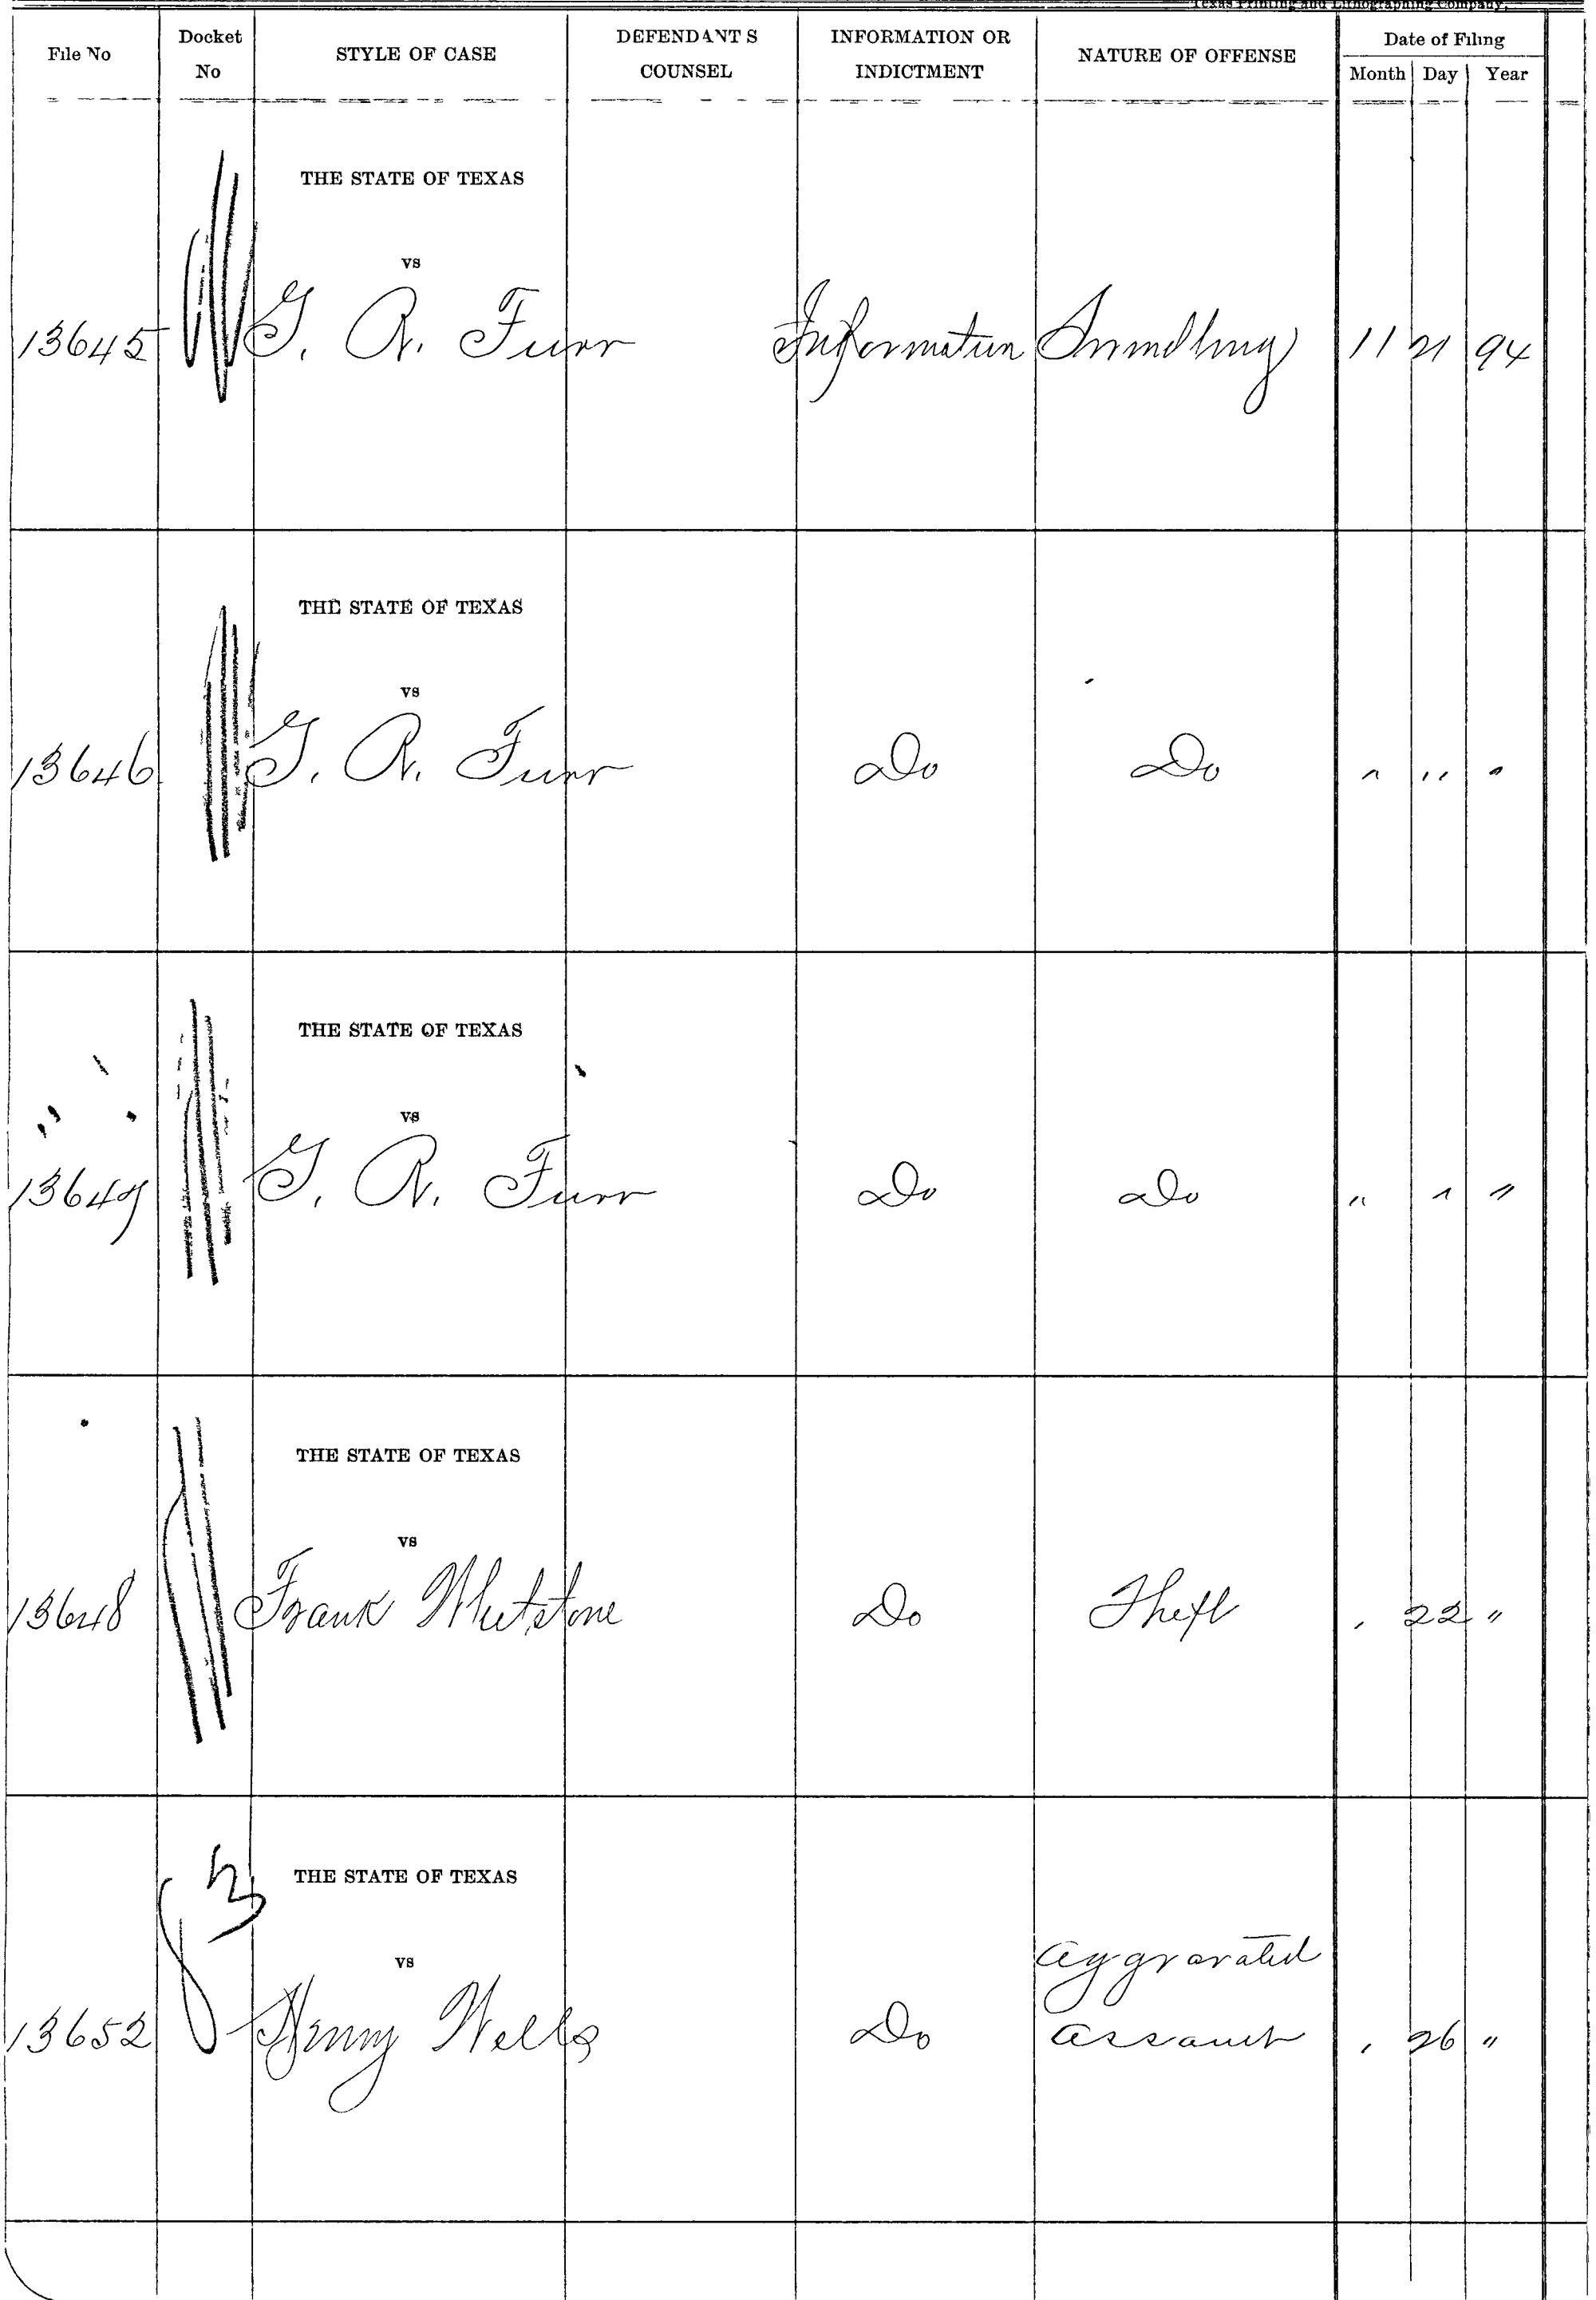 Texas Printing and Lithographing Company.
File No Docket No STYLE OF CASE DEFENDANT S COUNSEL INFORMATION OR INDICTMENT NATURE OF OFFENSE Date of Filing
Month Day Year
THE STATE OF TEXAS
vs
13645 G. R. Furr Information Swindling 11 21 94
THE STATE OF TEXAS
vs
13646 G. R. Furr Do Do " " "
THE STATE OF TEXAS
vs
13647 G. R. Furr Do Do " " "
THE STATE OF TEXAS
vs
13648 Frank Whetstone Do Theft " 22 "
THE STATE OF TEXAS
vs
Aggravated
13652 Henry Wells Do Assault " 26 "